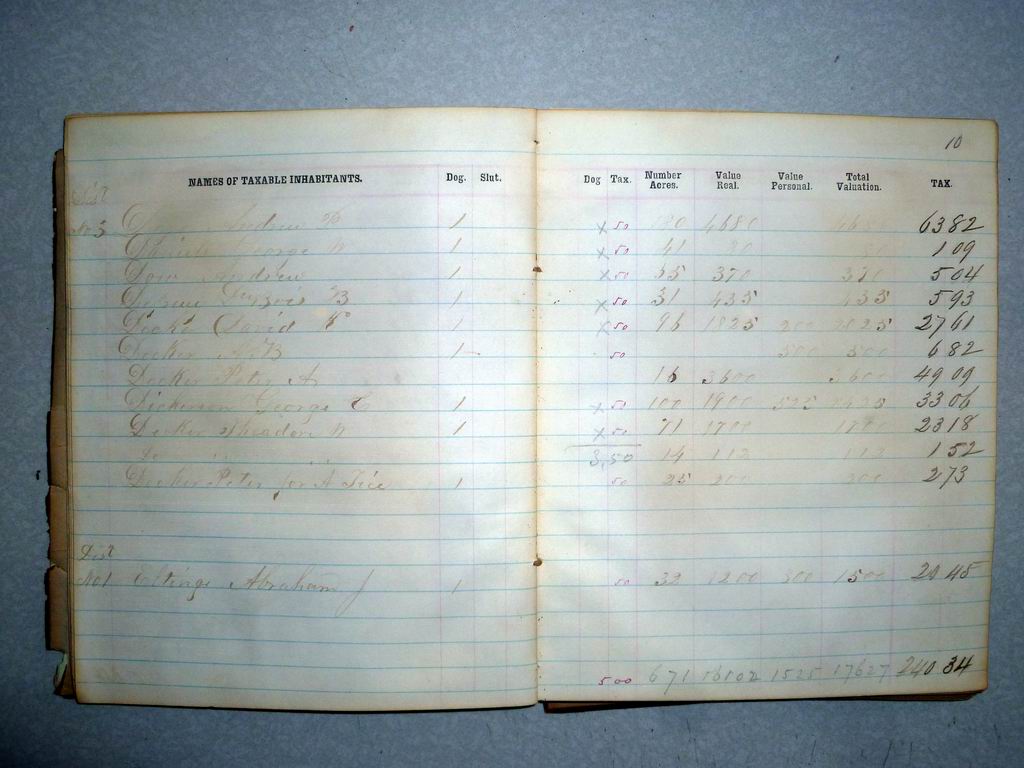 10
NAMES OF TAXABLE INHABITANTS. Dog. Slut. Dog Tax. Number Acres. Value Real. Value Personal. Total Valuation. TAX.
Dist
No 3 Andrew 1 x 50 4680 63 82
George W 1 x 50 41 1 09
Andrew 1 x 50 35 370 370 5 04
B 1 x 50 31 435 435 5 93
David 1 x 50 96 1825 200 2025 27 61
Decker B 1 50 500 500 6 82
Decker Peter A 16 3600 3600 49 09
Dickerson George C 1 x 50 100 1900 525 33 06
Decker Theadore W 1 x 50 71 1700 1700 23 18
3,50 14 112 112 1 52
Decker Peter for A Tice 1 50 25 200 200 2 73
Dist
No 1 Eltinge Abraham J 1 50 32 1200 300 1500 20 45
5 00 671 16102 1525 17627 240 34